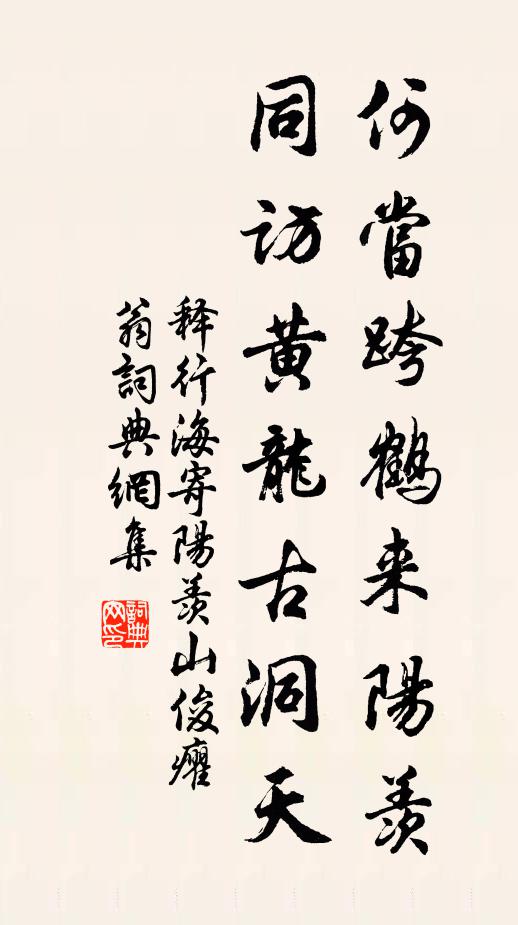 何當跨鶴来陽羨
同訪黄龍古洞天
释行海寄陽羨山俊癯
翁詞典網集
詞典网印